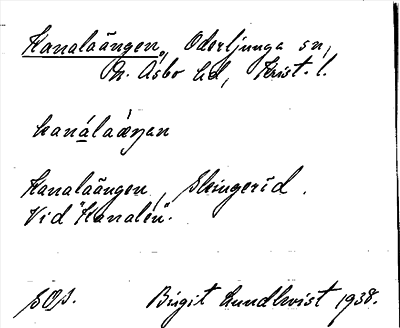 Kanalaängen, Oderljunga sn,
N. Åsbo hd, Krist. l.
kanálaàŋan
Kanalaängen, Skingerid.
Vid "Kanalen".
SOS. Birgit Lundkvist 1938.